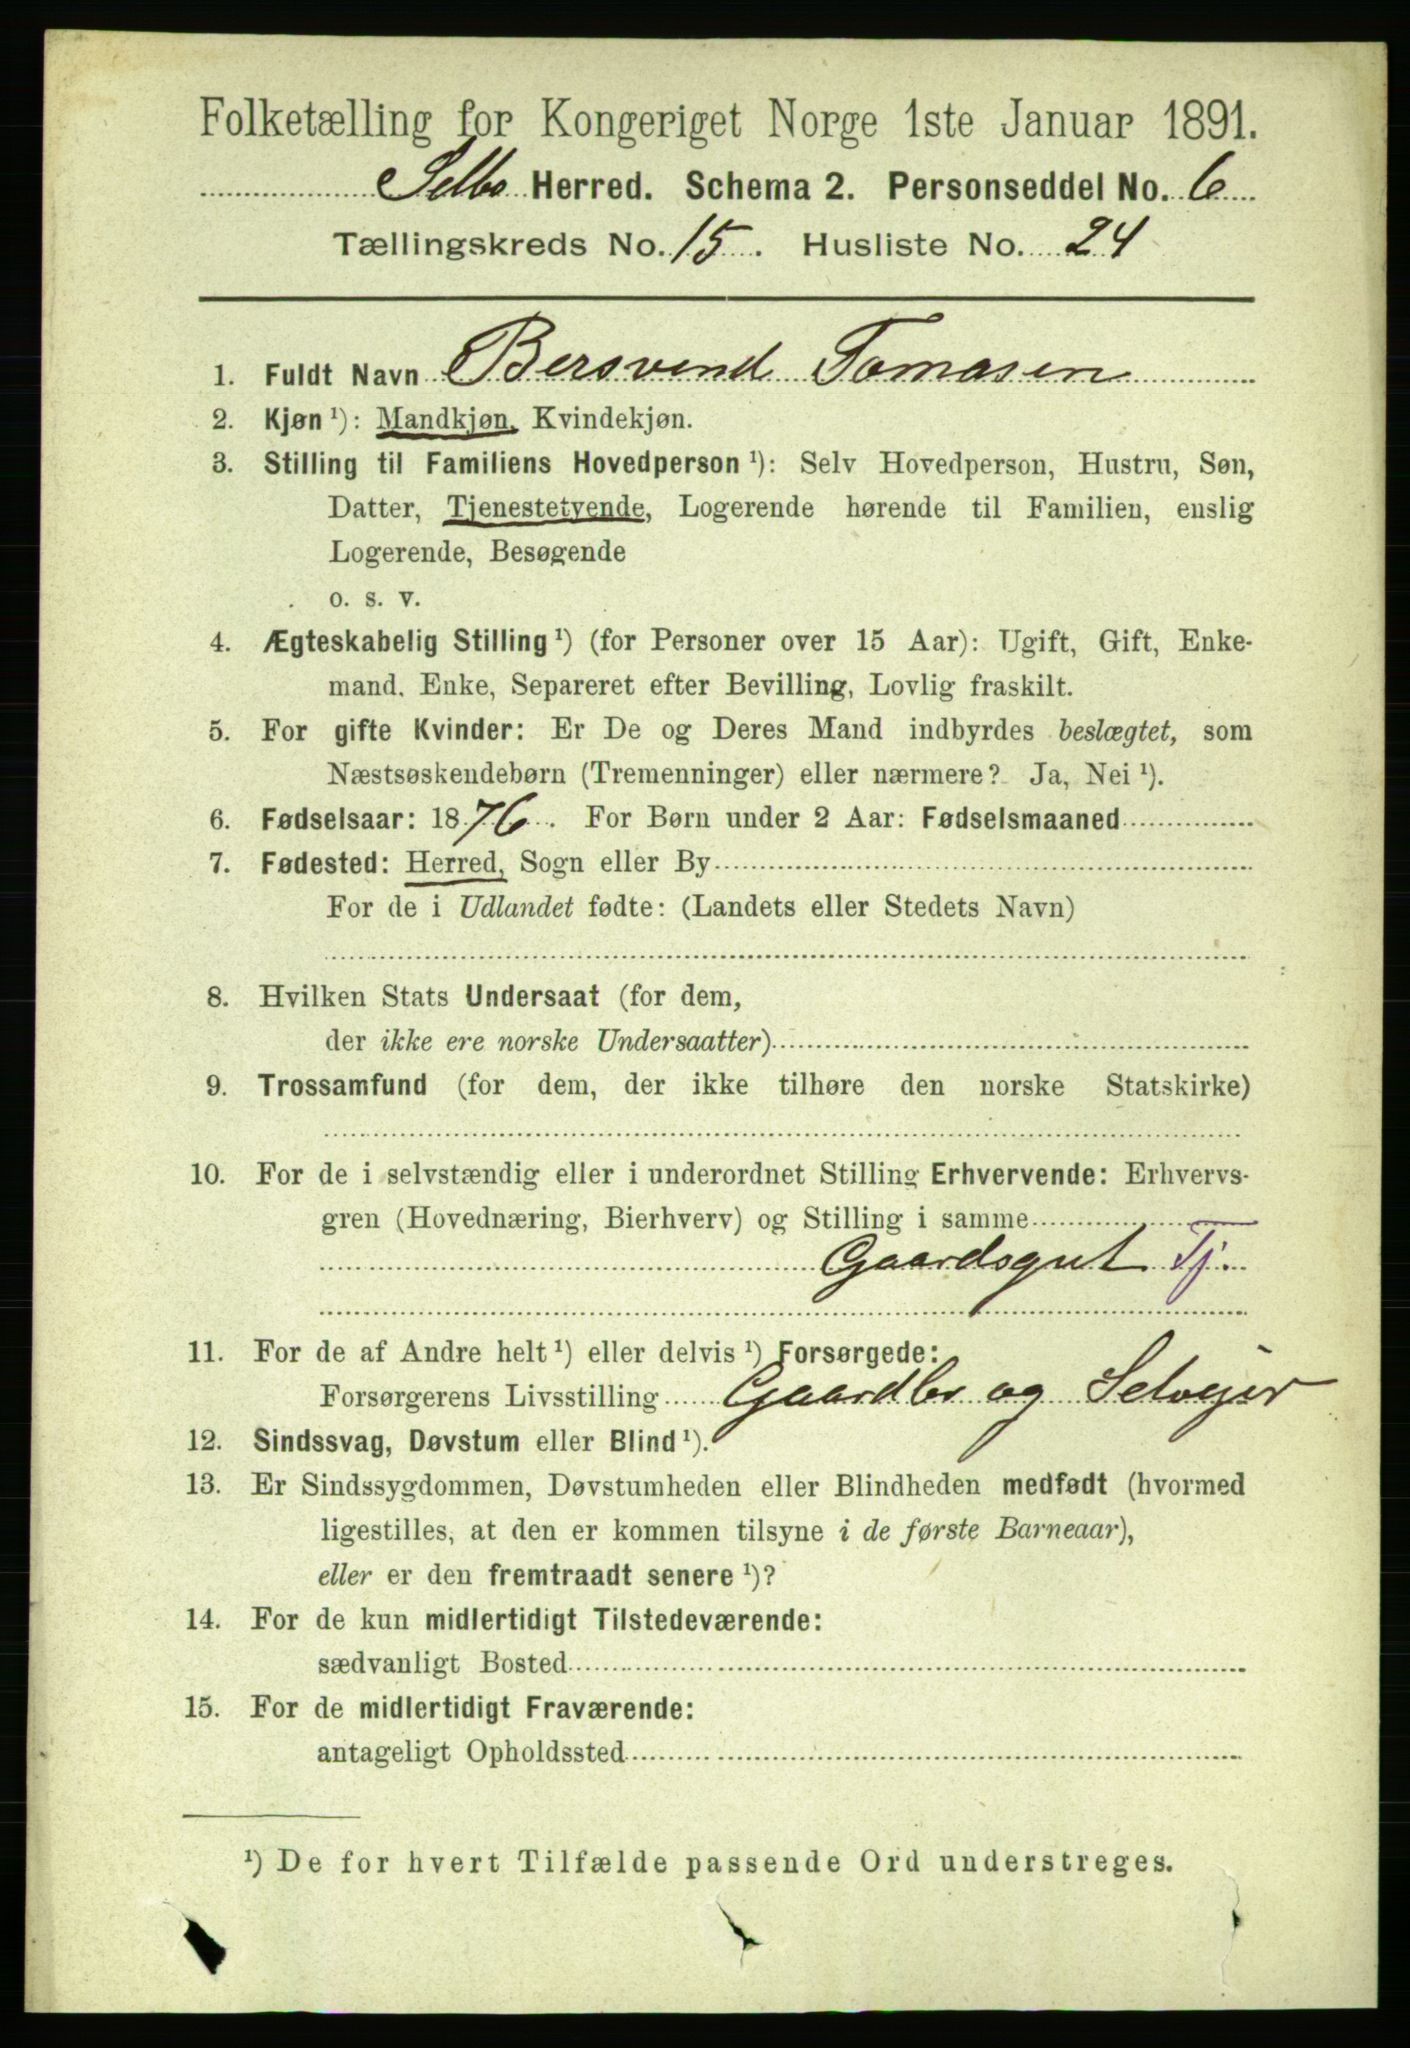 Folketælling for Kongeriget Norge 1ste Januar 1891.
Selbo Herred. Schema 2. Personseddel No. 6
Tællingskreds No. 15. Husliste No. 24
1. Fuldt Navn Bersvend Tomasen
2. Kjøn ¹): Mandkjøn, Kvindekjøn.
3. Stilling til Familiens Hovedperson ¹): Selv Hovedperson, Hustru, Søn,
Datter, Tjenestetyende, Logerende hørende til Familien, enslig
Logerende, Besøgende
o. s. v.
4. Ægteskabelig Stilling ¹) (for Personer over 15 Aar): Ugift, Gift, Enke-
mand, Enke, Separeret efter Bevilling, Lovlig fraskilt.
5. For gifte Kvinder: Er De og Deres Mand indbyrdes beslægtet, som
Næstsøskendebørn (Tremenninger) eller nærmere? Ja, Nei ¹).
6. Fødselsaar: 1876. For Børn under 2 Aar: Fødselsmaaned
7. Fødested: Herred, Sogn eller By
For de i Udlandet fødte: (Landets eller Stedets Navn)
8. Hvilken Stats Undersaat (for dem,
der ikke ere norske Undersaatter)
9. Trossamfund (for dem, der ikke tilhøre den norske Statskirke)
10. For de i selvstændig eller i underordnet Stilling Erhvervende: Erhvervs-
gren (Hovednæring, Bierhverv) og Stilling i samme
Gaardsgut Tj.
11. For de af Andre helt ¹) eller delvis ¹) Forsørgede:
Forsørgerens Livsstilling Gaardbr og Selvejer
12. Sindssvag, Døvstum eller Blind ¹).
13. Er Sindssygdommen, Døvstumheden eller Blindheden medfødt (hvormed
ligestilles, at den er kommen tilsyne i de første Barneaar),
eller er den fremtraadt senere ¹)?
14. For de kun midlertidigt Tilstedeværende:
sædvanligt Bosted
15. For de midlertidigt Fraværende:
antageligt Opholdssted
¹) De for hvert Tilfælde passende Ord understreges.